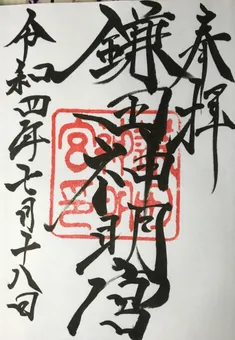 奉拝
鎌田神明宮
令和四年七月十八日